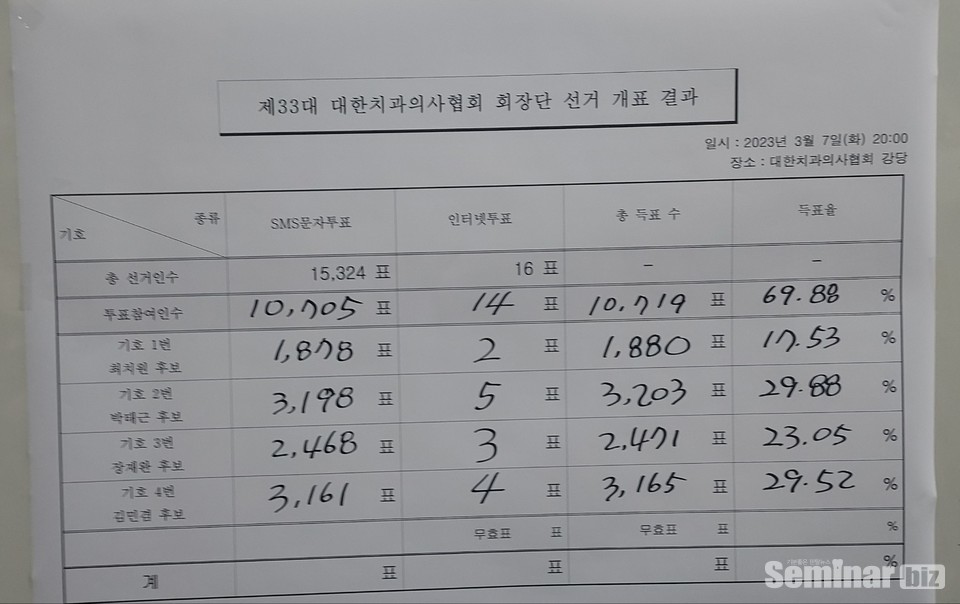 제33대 대한치과의사협회 회장단 선거 개표 결과
일시 : 2023년 3월 7일(화) 20:00
장소 : 대한치과의사협회 강당
종류
기호
SMS문자투표 인터넷투표 총 득표 수 득표율
총 선거인수 15,324 표 16 표 - -
투표참여인수 10,705 표 14 표 10,719 표 69.88 %
기호 1번
최치원 후보 1,878 표 2 표 1,880 표 17.53 %
기호 2번
박태근 후보 3,198 표 5 표 3,203 표 29.88 %
기호 3번
장재완 후보 2,468 표 3 표 2,471 표 23.05 %
기호 4번
김민겸 후보 3,161 표 4 표 3,165 표 29.52 %
무효표 표 무효표 표 %
계 표 표 표 %
Seminar biz